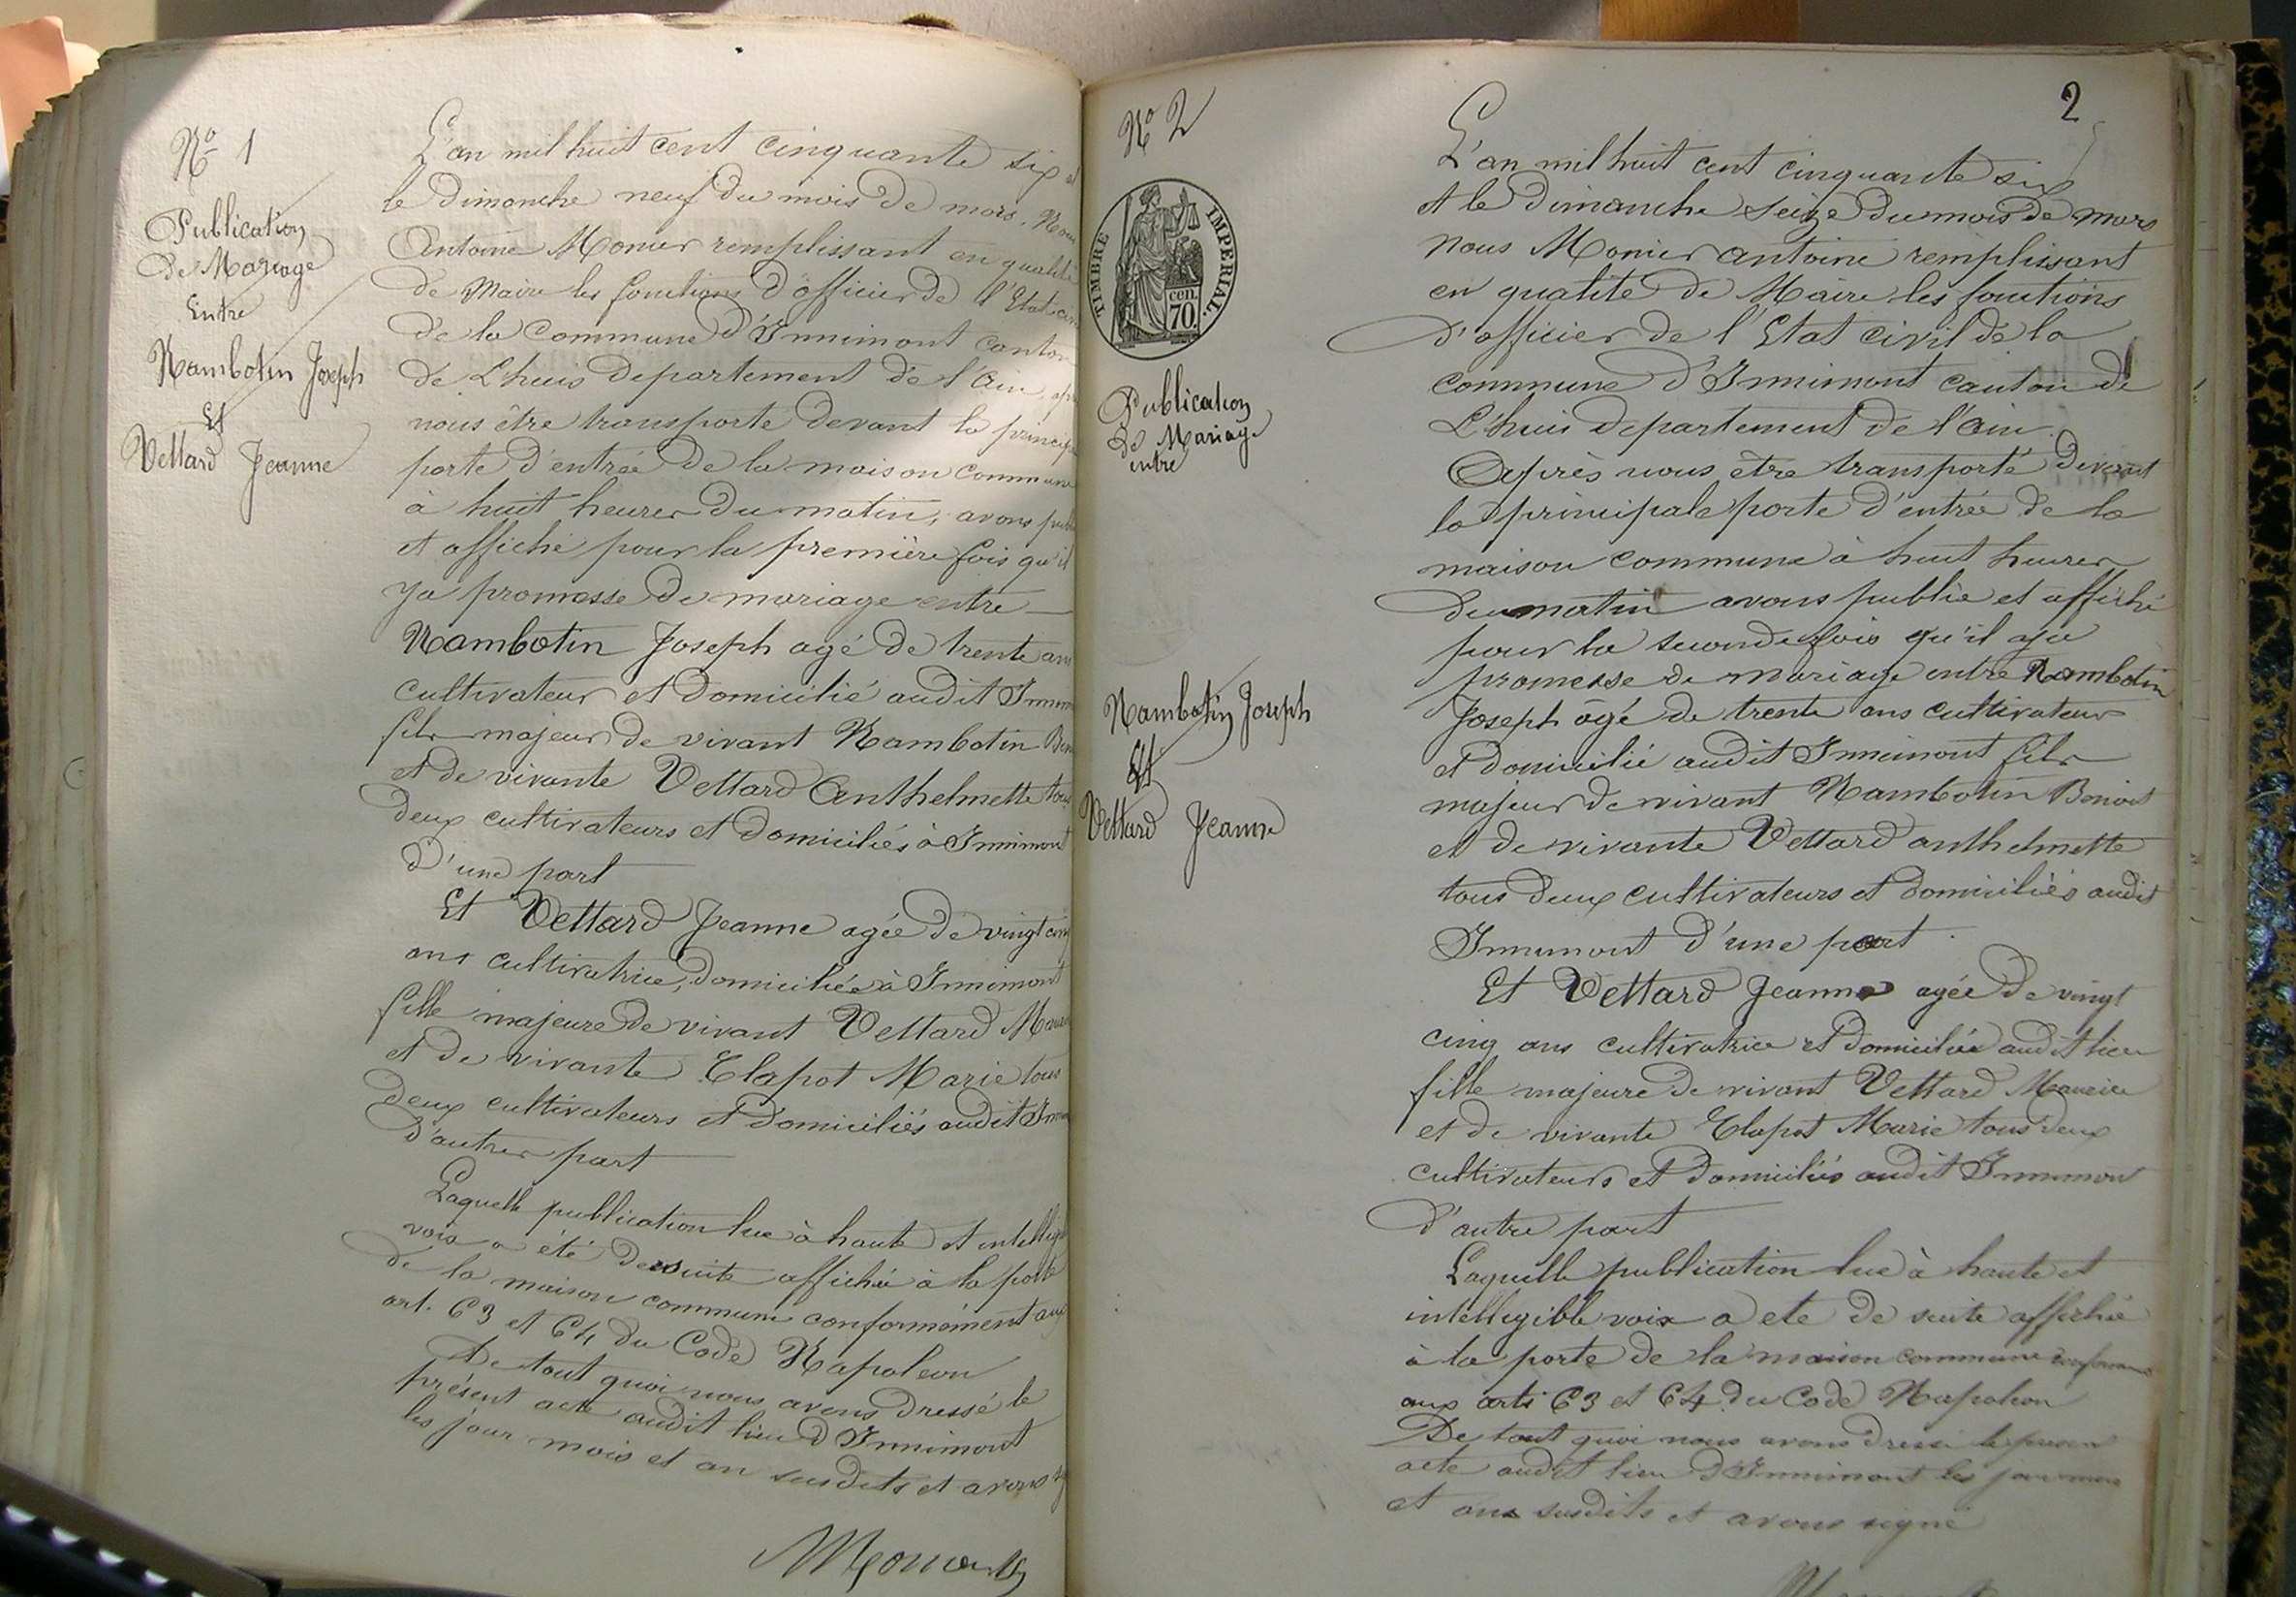 Nº 1
Publication
de Mariage
Entre
Nambotin Joseph
Et
Vettard Jeanne
L'an mil huit cent cinquante six et
le Dimanche neuf du mois de mars. Nous
Antoine Monier remplissant en qualité
de Maire les fonctions d'officier de l'Etat
de la commune d'Innimont canton
de L'huis departement de l'Ain,
nous être transporté devant la
porte d'entrée de la maison commune
à huit heures du matin, avons
et affiché pour la première fois qu'il
ya promesse de mariage entre
Nambotin Joseph agé de trente ans
cultivateur et domicilié audit
fils majeur de vivant Nambotin
et de vivante Vettard Anthelmette tous
deux cultivateurs et domiciliés à Innimont
d'une part
Et Vettard Jeanne agée de vingt
ans cultivatrice, domiciliée à Innimont
fille majeure de vivant Vettard
et de vivante Clapot Marie tous
deux cultivateurs et domiciliés audit
d'autre part
Laquelle publication lue à haute et
voix a été de suite affichée à la porte
de la maison commune conformément aux
art. 63 et 64 du Code Napoleon
De tout quoi nous avons dressé le
présent acte audit lieu d'Innimont
les jour mois et an susdits et avons
Nº 2
TIMBRE IMPERIAL.
cen.
70
Publication
de Mariage
entre
Nambotin Joseph
Et
Vettard Jeanne
2
L'an mil huit cent cinquante six
et le Dimanche seize du mois de mars
nous Monier antoine remplissant
en qualité de Maire les fonctions
d'officier de l'Etat civil de la
commune d'Innimont canton de
L'huis departement de l'Ain.
Après nous être transporté devant
la principale porte d'entrée de la
maison commune à huit heures
du matin avons publié et affiché
pour la seconde fois qu'il
promesse de mariage entre Nambotin
Joseph âgé de trente ans cultivateur
et domicilié audit Innimont fils
majeur de vivant Nambotin Benoit
et de vivante Vettard anthelmette
tous deux cultivateurs et domiciliés audit
Innimont d'une part.
Et Vettard Jeanne agée de vingt
cinq ans cultivatrice et domiciliée audit lieu
fille majeure de vivant Vettard Maurice
et de vivante Clapot Marie tous deux
cultivateurs et domiciliés audit Innimont
d'autre part
Laquelle publication lue à haute et
intelligible voix a ete de suite affichée
à la porte de la maison commune
aux arts 63 et 64 du Code Napoleon
De tout quoi nous avons dressé le
acte audit lieu d'Innimont les jour mois
et an susdits et avons signé